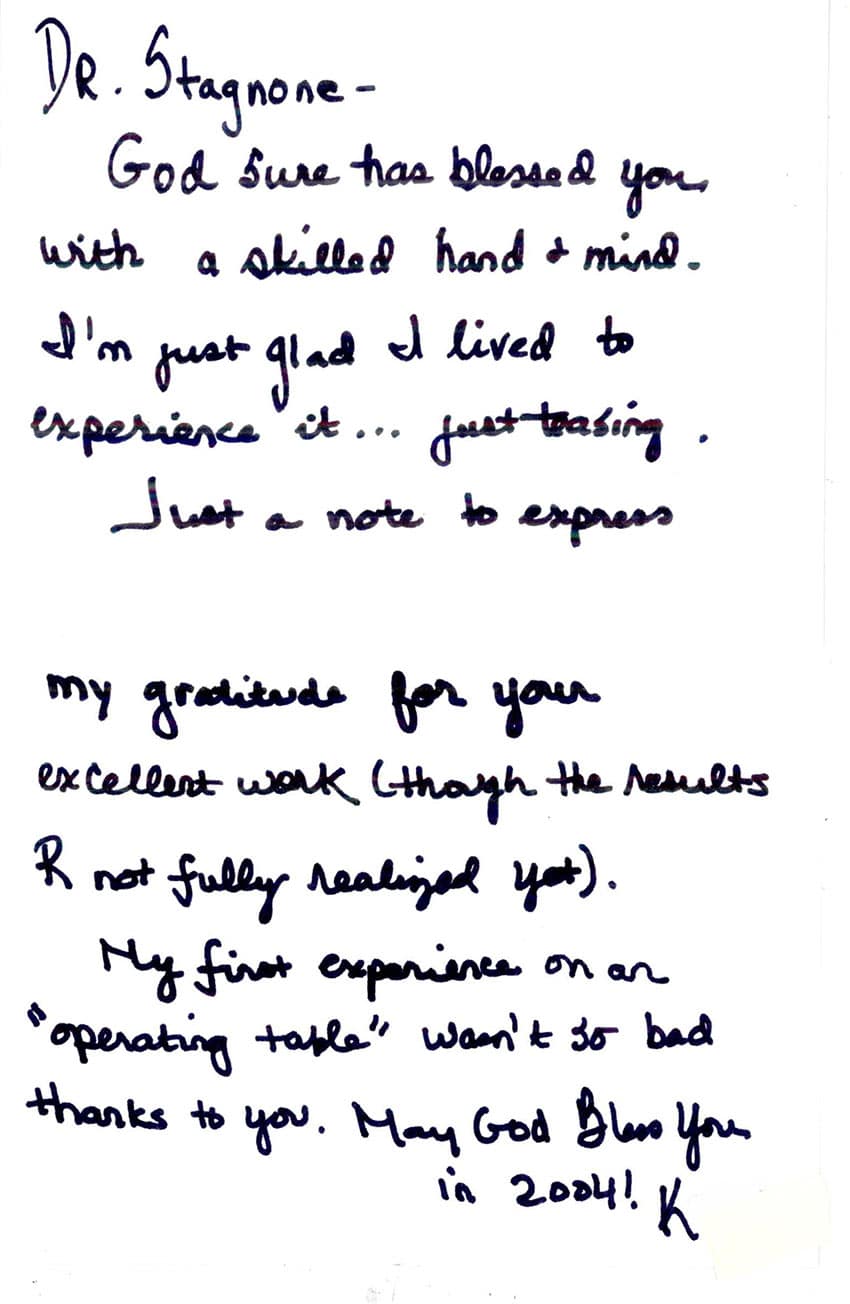 DR. Stagnone -
God sure has blessed you
with a skilled hand & mind.
I'm just glad I lived to
experience it... just teasing.
Just a note to express
my gratitude for your
excellent work (though the results
R not fully realized yet).
My first experience on an
"operating table" wasn't so bad
thanks to you. May God Bless You
in 2004! K